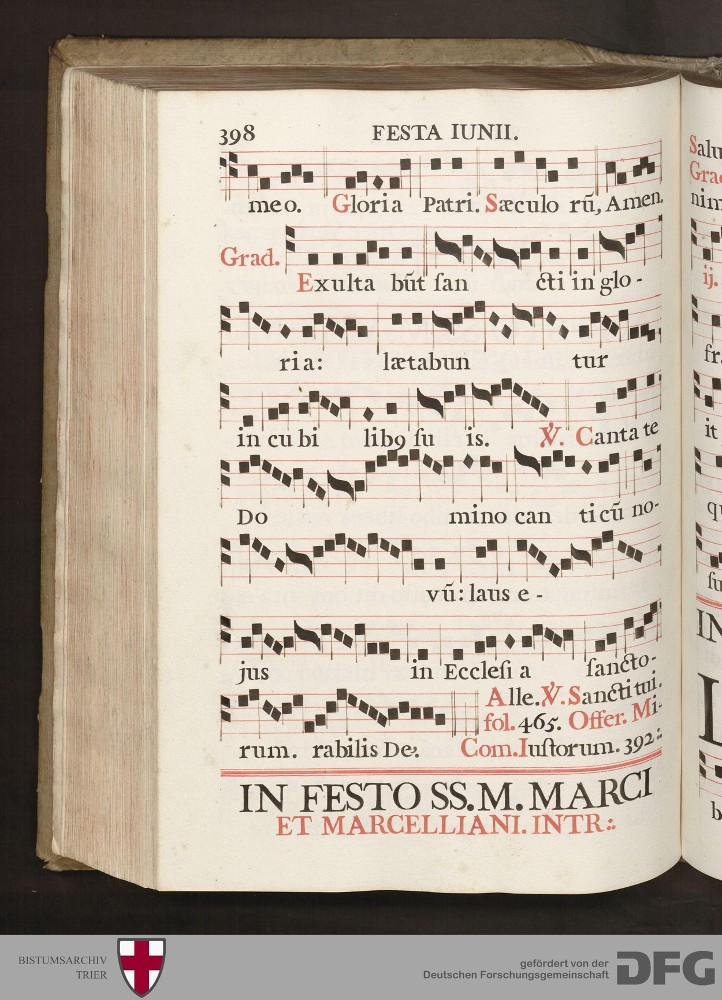 398 FESTA IUNII.
meo. Gloria Patri. Sæculo rũ, Amen.
Grad.
Exulta bũt ſan cti in glo-
ria: lætabun tur
in cu bi lib9 ſu is. ℣. Canta te
Do mino can ticũ no-
vũ: laus e-
jus in Eccleſi a ſancto-
Alle. ℣. Sancti tui.
fol. 465. Offer. Mi-
rum. rabilis De9. Com. Iuſtorum. 392.
IN FESTO SS. M. MARCI
ET MARCELLIANI. INTR:.
Salu
Gra
nim
ij.
fr
it
qu
ſu
IN
b
BISTUMSARCHIV
TRIER
gefördert von der
Deutschen Forschungsgemeinschaft
DFG